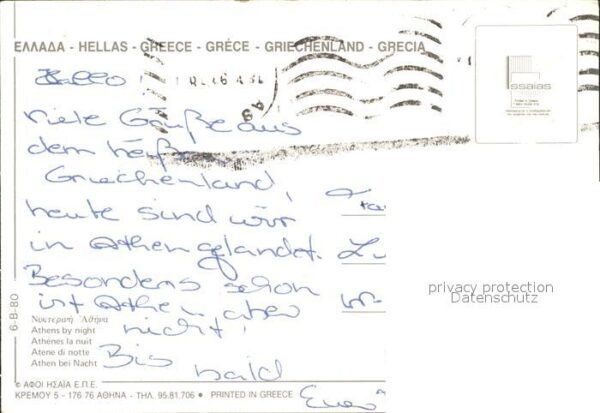 ΕΛΛΑΔΑ - HELLAS - GREECE - GRÈCE - GRIECHENLAND - GRECIA
Hallo!
Viele Grüße aus
dem heißen
Griechenland,
heute sind wir
in Athen gelandet.
Besonders schön
ist Athen aber
nicht!
Bis
bald
Essaias
privacy protection
Datenschutz
6-B-80
Νυκτερινή Ἀθήνα
Athens by night
Athènes la nuit
Atene di notte
Athen bei Nacht
© ΑΦΟΙ ΗΣΑΪΑ Ε.Π.Ε.
ΚΡΕΜΟΥ 5 - 176 76 ΑΘΗΝΑ - ΤΗΛ. 95.81.706 • PRINTED IN GREECE